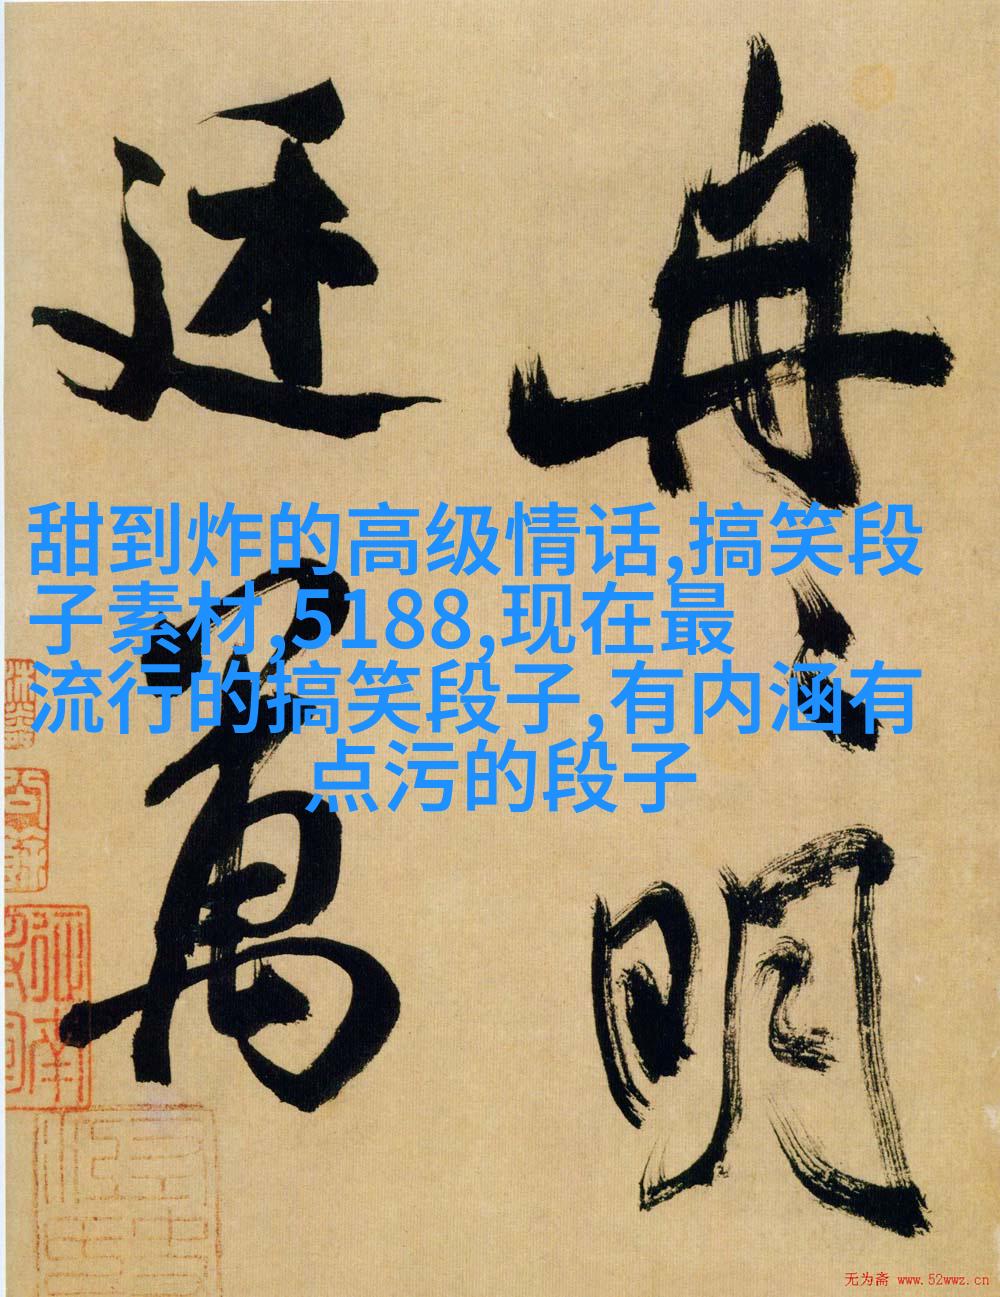 明
萬
甜到炸的高级情话,搞笑段
子素材,5188,现在最
流行的搞笑段子,有内涵有
点污的段子
无为斋 www.52wwz.cn